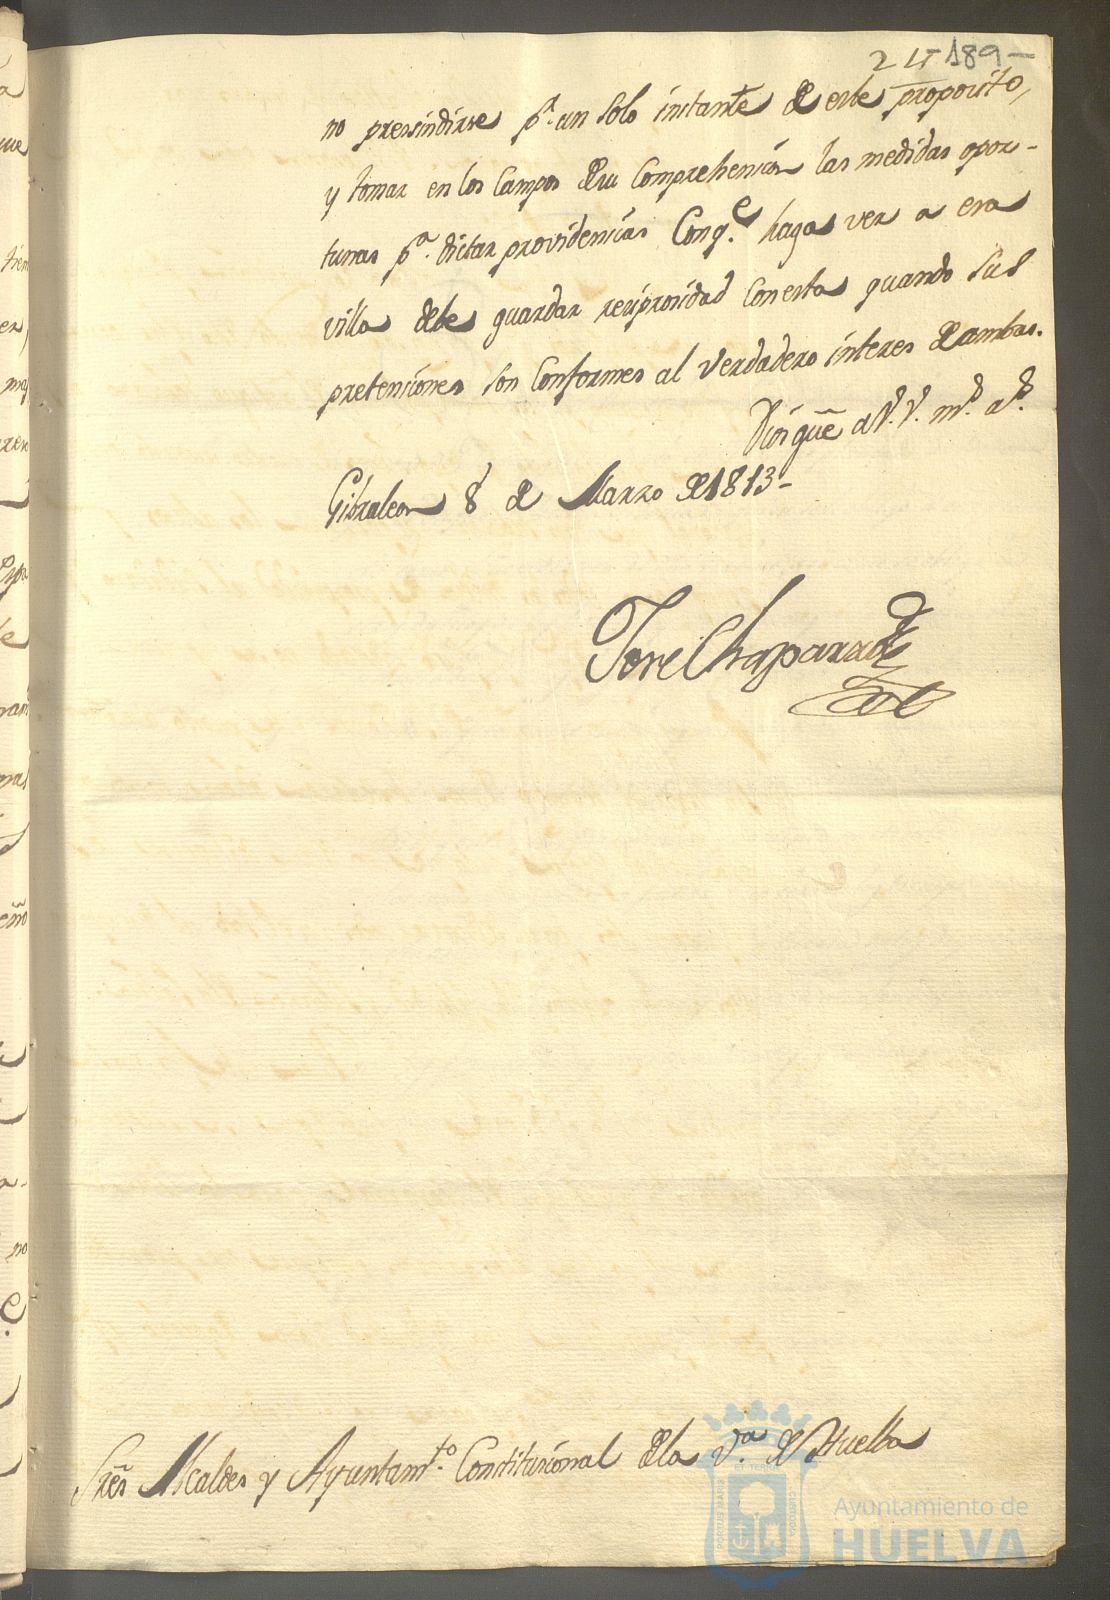 24 189-
no presindirse pa. un solo instante de este proposito,
y tomar en los Campos de su Comprehension las medidas opor-
tunas pa. dictar providencias Conqe. haga ver a esa
villa debe guardar resiprosidad con esta quando sus
pretenciones son Conformes al verdadero interes de ambas.
Dios gue a V.V. ms. as.
Gibraleon 8 de Marzo de 1813-
Jose Chaparro
Sres Alcaldes y Ayuntamto. Constitusional de la Va. de Huelba
PORTUS MARIS
ET TERRE
CUSTODIA
Ayuntamiento de
HUELVA